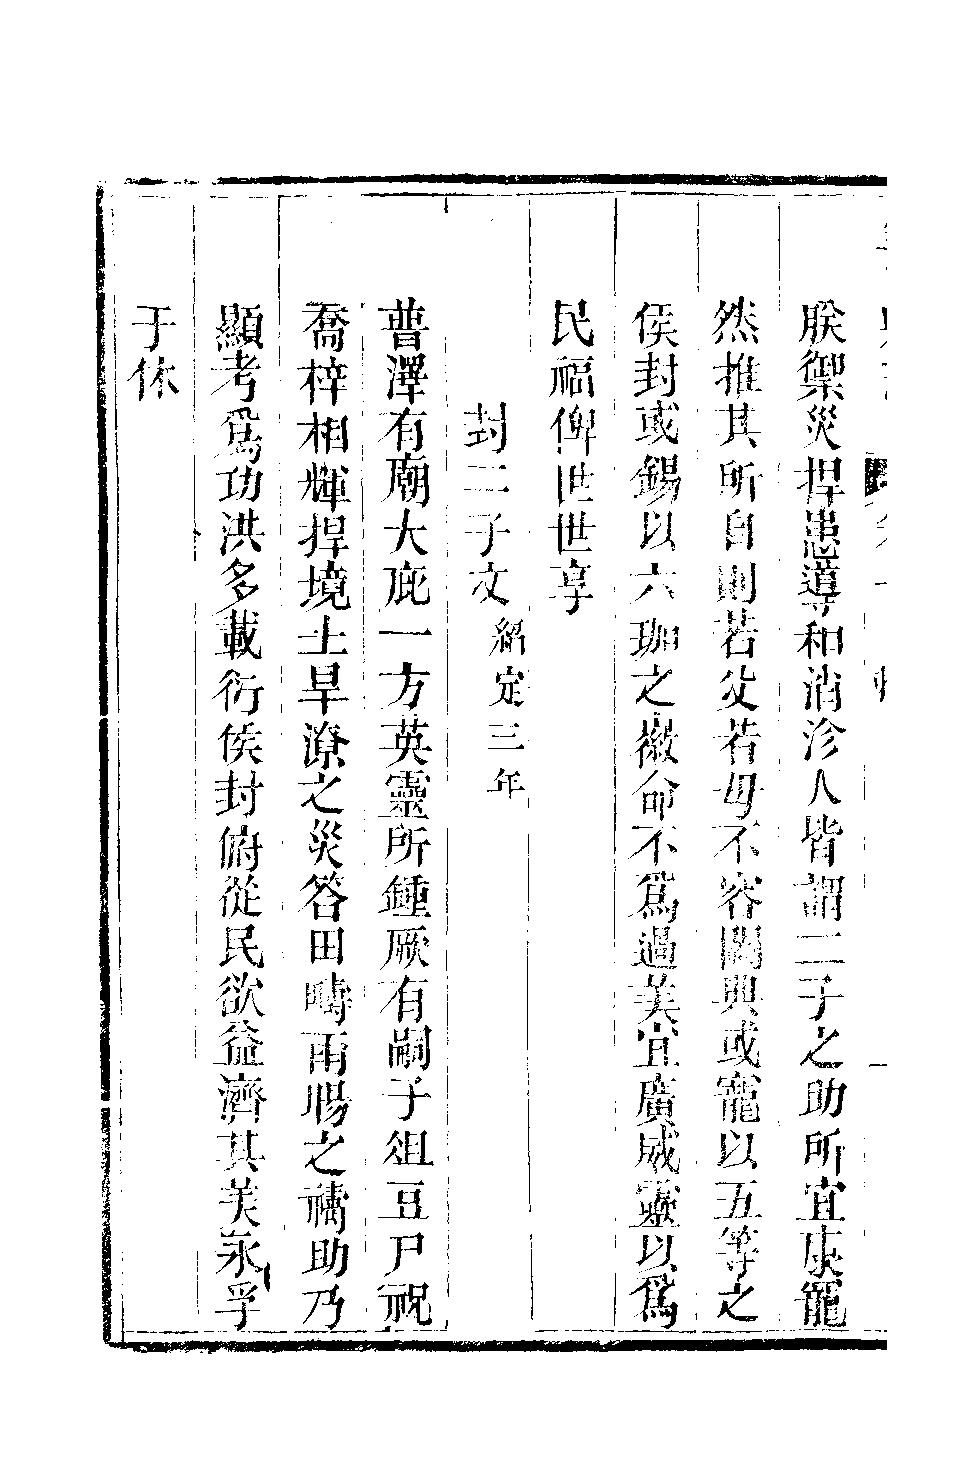 朕禦災捍患導和消沴人皆謂二子之助所宜庚寵
然推其所自則若父若母不容闕典或寵以五等之
侯封或錫以六珈之徽命不爲過美宜廣威靈以爲
民福俾世世享
封二子文紹定三年
普澤有廟大庇一方英靈所鍾厥有嗣子俎豆尸祝
喬梓相輝捍境土旱潦之災答田疇雨暘之禱助乃
顯考爲功洪多載衍侯封俯從民欲益濟其美永孚
于休